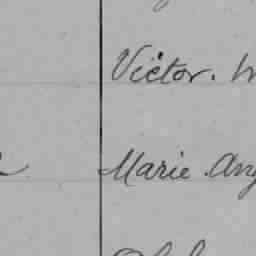 Victor.
Marie Ang